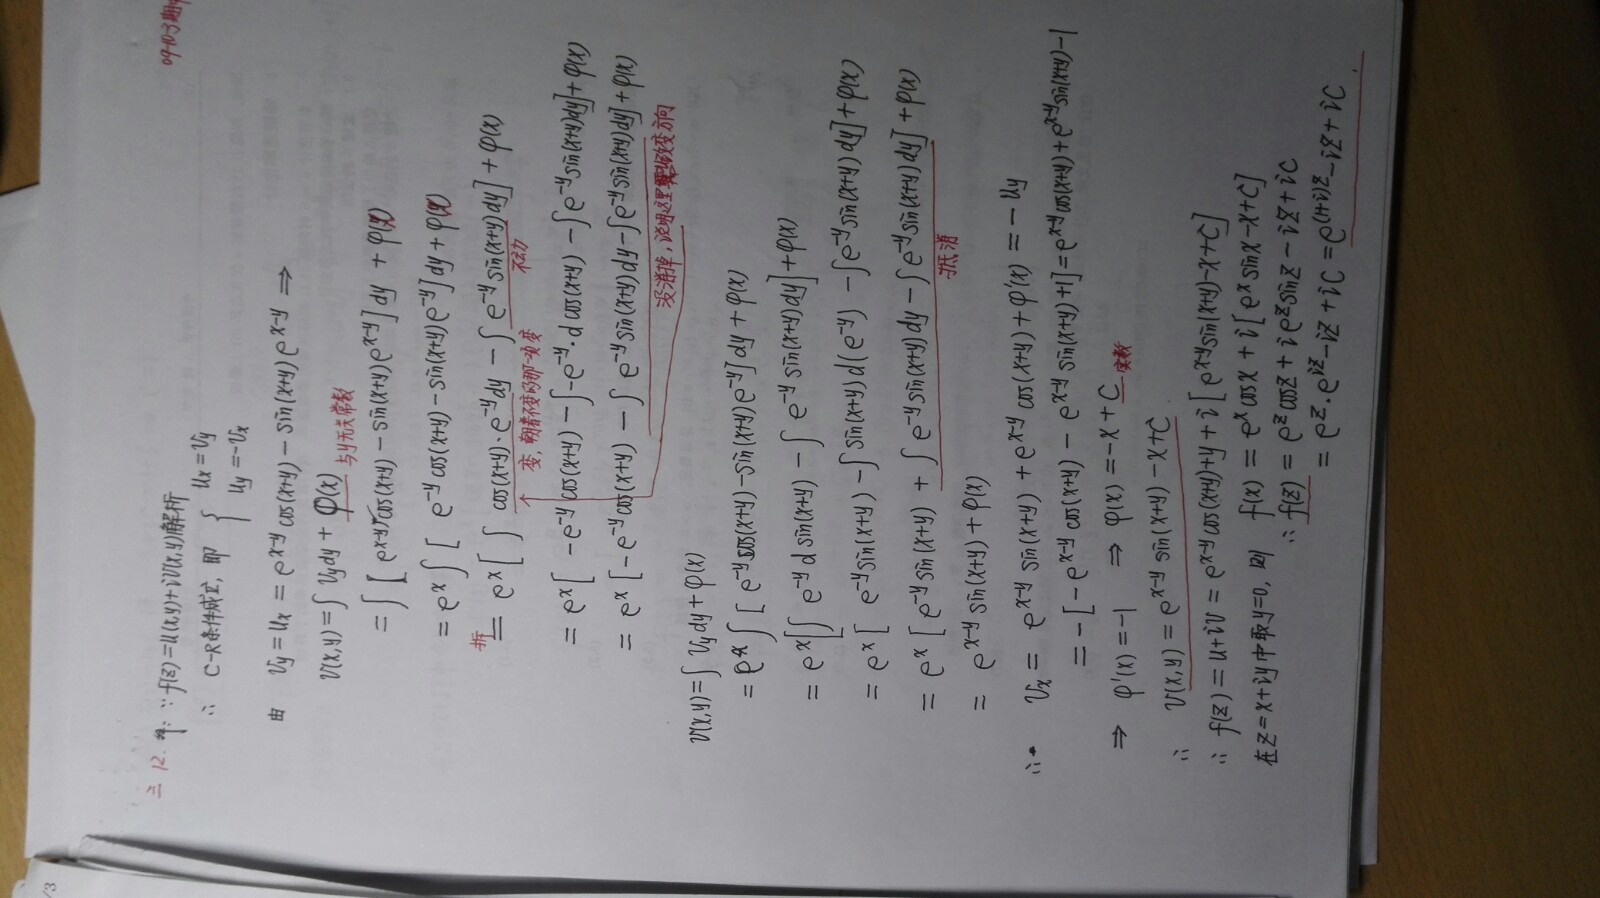 09-10-3期中
三 12. 解: ∵ f(z)=u(x,y)+iv(x,y)解析
∴ C-R条件成立, 即 { ux=vy
uy=-vx
由 vy=ux=e^{x-y}cos(x+y)-sin(x+y)e^{x-y} ⇒
v(x,y)=∫vydy+φ(x)
与y无关常数
=∫[e^{x-y}cos(x+y)-sin(x+y)e^{x-y}]dy+φ(x)
=e^x∫[e^{-y}cos(x+y)-sin(x+y)e^{-y}]dy+φ(x)
拆
=e^x[∫cos(x+y)·e^{-y}dy-∫e^{-y}sin(x+y)dy]+φ(x)
变, 朝着不变的那一项变 不动
=e^x[-e^{-y}cos(x+y)-∫-e^{-y}·dcos(x+y)-∫e^{-y}sin(x+y)dy]+φ(x)
=e^x[-e^{-y}cos(x+y)-∫e^{-y}sin(x+y)dy-∫e^{-y}sin(x+y)dy]+φ(x)
没消掉, 说明这里要改变方向
v(x,y)=∫vydy+φ(x)
=e^x∫[e^{-y}cos(x+y)-sin(x+y)e^{-y}]dy+φ(x)
=e^x[∫e^{-y}dsin(x+y)-∫e^{-y}sin(x+y)dy]+φ(x)
=e^x[e^{-y}sin(x+y)-∫sin(x+y)d(e^{-y})-∫e^{-y}sin(x+y)dy]+φ(x)
=e^x[e^{-y}sin(x+y)+∫e^{-y}sin(x+y)dy-∫e^{-y}sin(x+y)dy]+φ(x)
抵消
=e^{x-y}sin(x+y)+φ(x)
∴ vx=e^{x-y}sin(x+y)+e^{x-y}cos(x+y)+φ'(x)=-uy
=-[-e^{x-y}cos(x+y)-e^{x-y}sin(x+y)+1]=e^{x-y}cos(x+y)+e^{x-y}sin(x+y)-1
⇒ φ'(x)=-1 ⇒ φ(x)=-x+C
实数
∴ v(x,y)=e^{x-y}sin(x+y)-x+C
∴ f(z)=u+iv=e^{x-y}cos(x+y)+y+i[e^{x-y}sin(x+y)-x+C]
在z=x+iy中取y=0, 则 f(x)=e^xcosx+i[e^xsinx-x+C]
∴ f(z)=e^zcosz+ie^zsinz-iz+iC
=e^z·e^{iz}-iz+iC=e^{(1+i)z}-iz+iC
/3